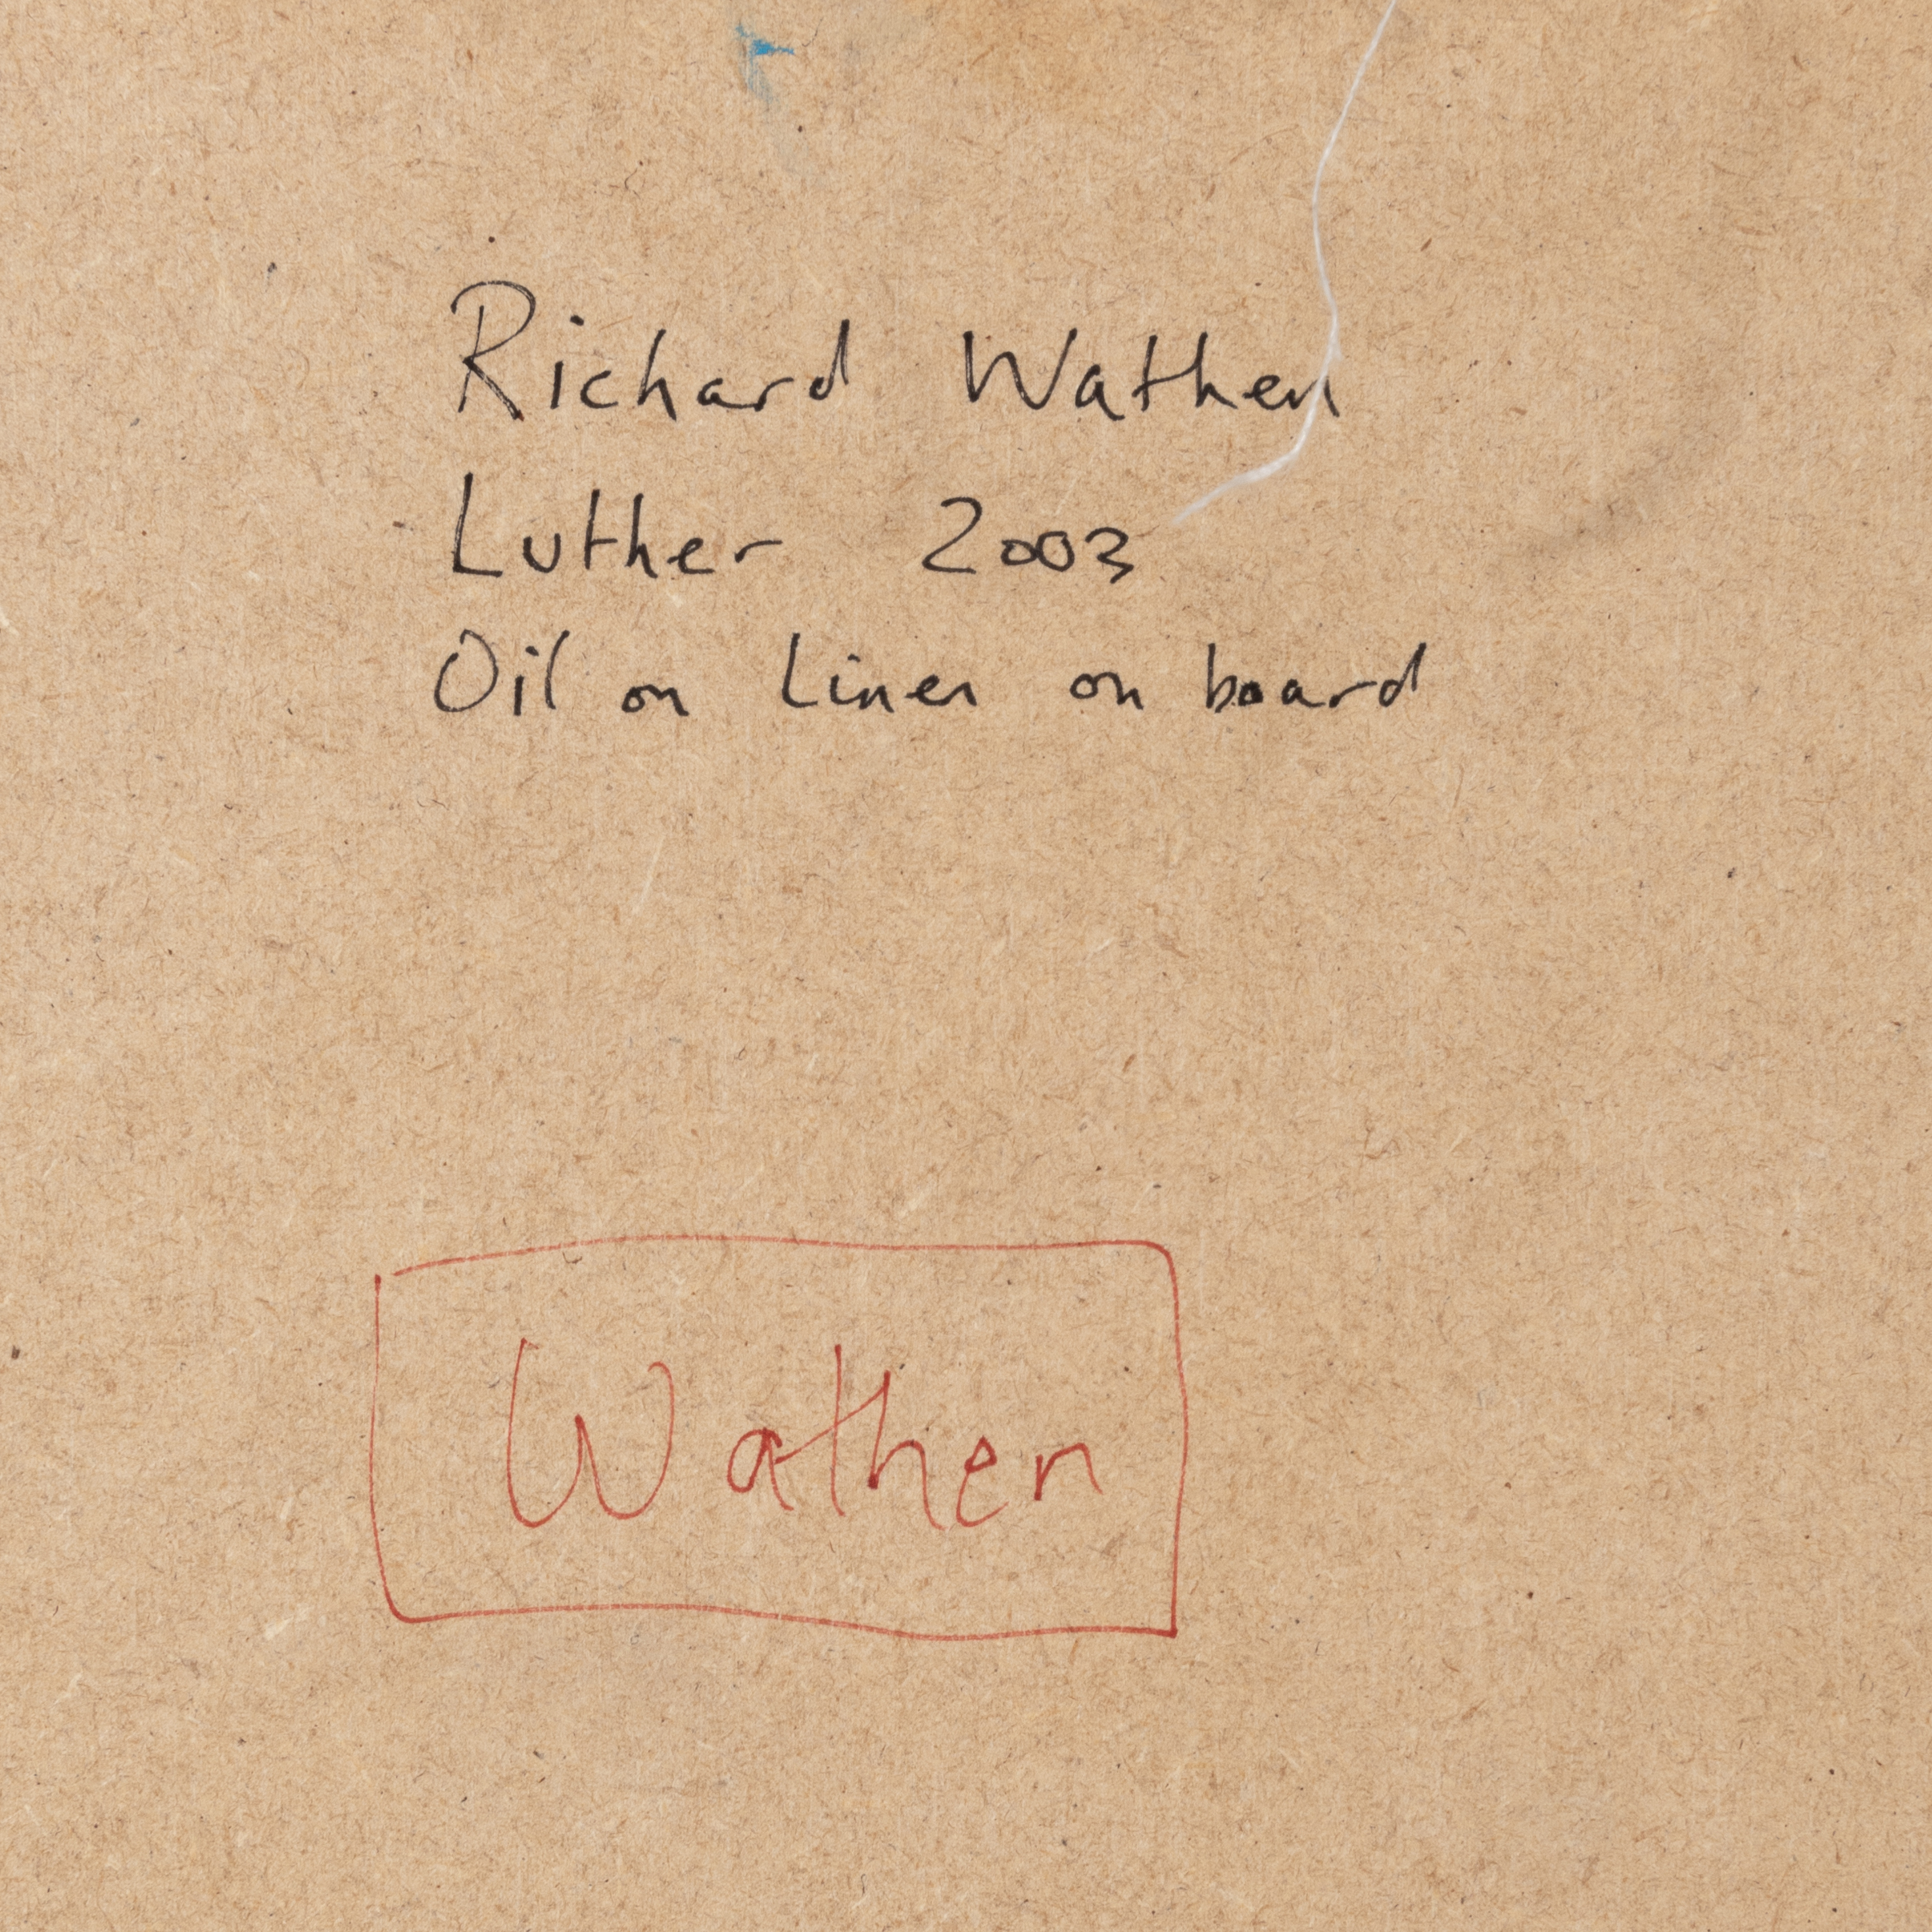 Richard Wathen
Luther 2003
Oil on Linen on board
Wathen